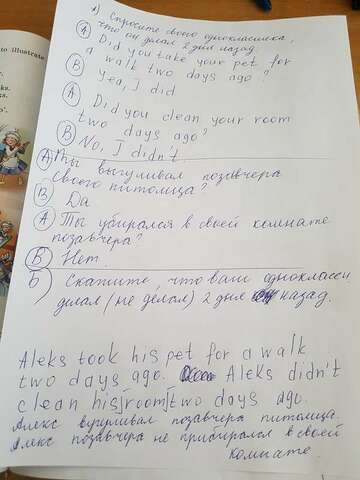 to illustrate
а) Спросите своего одноклассника,
что он делал 2 дня назад.
A Did you take your pet for
a walk two days ago?
B Yea, I did
A Did you clean your room
two days ago?
B No, I didn't.
A Ты выгуливал позавчера
своего питомца?
B Да.
A Ты убирался в своей комнате
позавчера?
B Нет.
Б) Скажите, что ваш одноклассн
делал (не делал) 2 дня назад.
Aleks took his pet for a walk
two days ago. Aleks didn't
clean his room two days ago.
Алекс выгуливал позавчера питомца.
Алекс позавчера не прибирался в своей
комнате.